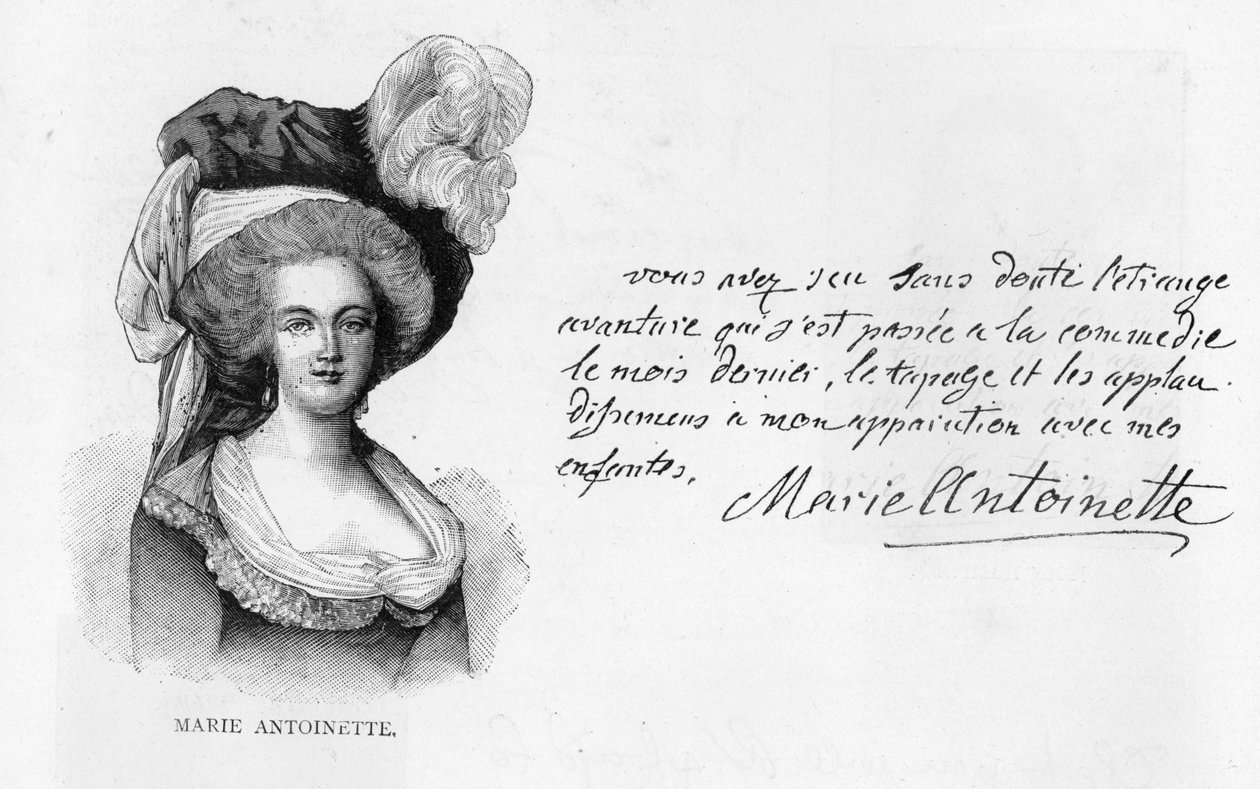 vous avez sçu sans doute l'etrange
avanture qui s'est passée a la commedie
le mois dernier, le tapage et les applau
dissemens a mon apparution avec mes
enfantes,
Marie Antoinette
MARIE ANTOINETTE,